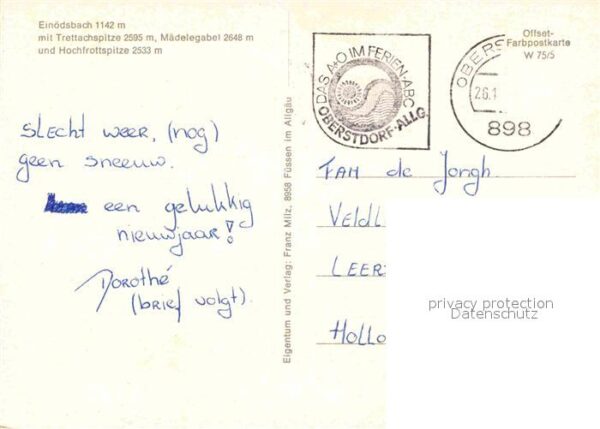 Einödsbach 1142 m
mit Trettachspitze 2595 m, Mädelegabel 2648 m
und Hochfrottspitze 2533 m
Offset-
Farbpostkarte
W 75/5
DAS A+O IM FERIEN-ABC
OBERSTDORF-ALLG.
OBERS
26.1
898
SLECHT WEER, (nog)
geen sneeuw.
een gelukkig
nieuwjaar!
Dorothé
(brief volgt).
Eigentum und Verlag: Franz Milz, 8958 Füssen im Allgäu
FAM de Jongh
VELDL
LEER
HOLLO
privacy protection
Datenschutz